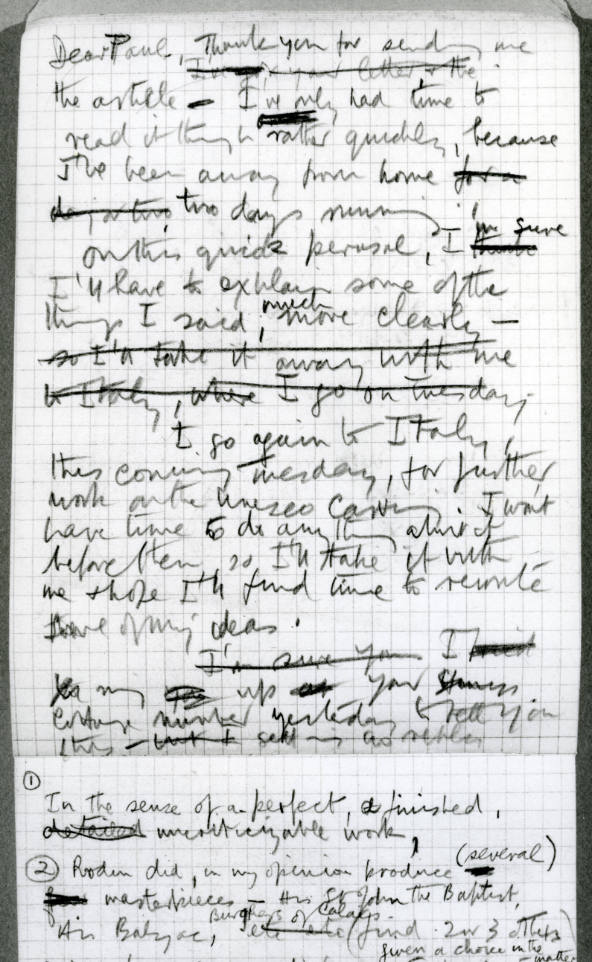 Dear Paul, Thank you for sending me
I've your letter & the
the article – I've only had time to
read it through rather quickly, because
I've been away from home for a
day or two, two days running,
on this quick perusal, I I'm sure
I'll have to explain some of the
things I said, much more clearly –
so I'll take it away with me
to Italy, where I go on tuesday.
I go again to Italy,
this coming Tuesday, for further
work on the Unesco Carving. I wont
have time to do anything about it
before then, so I'll take it with
me & hope I'll find time to rewrite
some of my ideas.
I'm sure you I tried
up your
Cottage number yesterday to tell you
this – but I
①
In the sense of a perfect, & finished,
detailed uncriticizable work,
② Rodin did, in my opinion produce (several)
masterpieces – His St John the Baptist,
His Balzac, Burghers of Calais. etc etc (find 2 or 3 others)
given a choice in the
matter